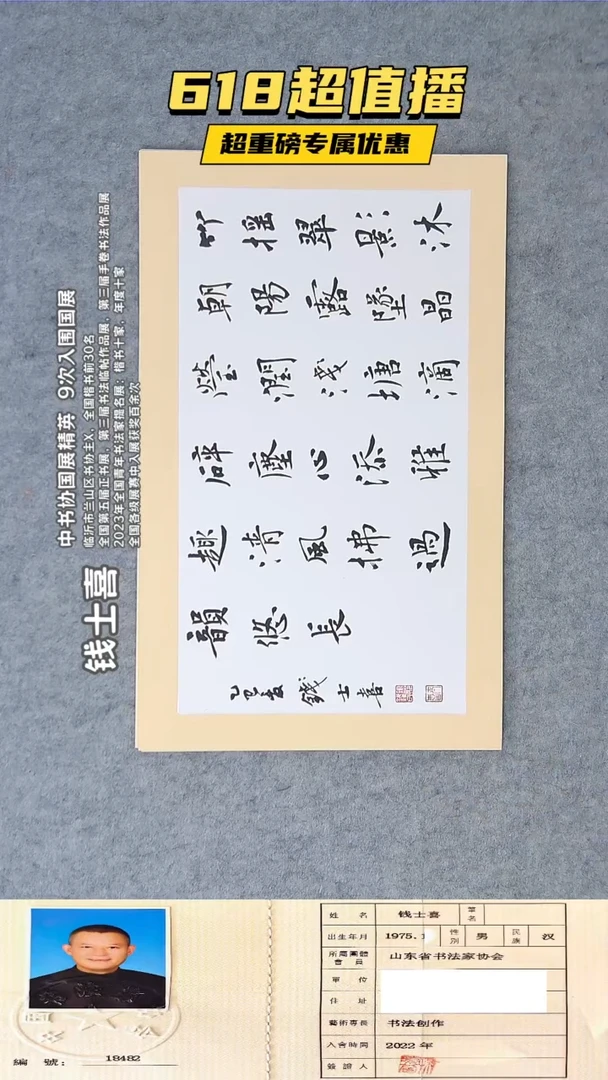 618超值播
超重磅专属优惠
钱士喜
中书协国展精英 9次入围国展
临沂市兰山区书协主X、全国楷书前30名
全国第五届正书展，第三届书法临帖作品展，第三届手卷书法作品展
2023年全国青年书法家提名展；楷书十家，年度十家
全国各级展赛中入展获奖百余次
竹摇翠影沐
朝陽露墜晶
瑩潤淺塘滴
辟塵心添雅
趣清風拂過
韻悠長
乙巳夏 錢士喜
編 號： 18482
姓 名 钱士喜 筆名
出生年月 1975.1 性別 男 民族 汉
所屬團體會員 山东省书法家协会
單 位
住 址
藝術專長 书法创作
入会時間 2022年
簽證人